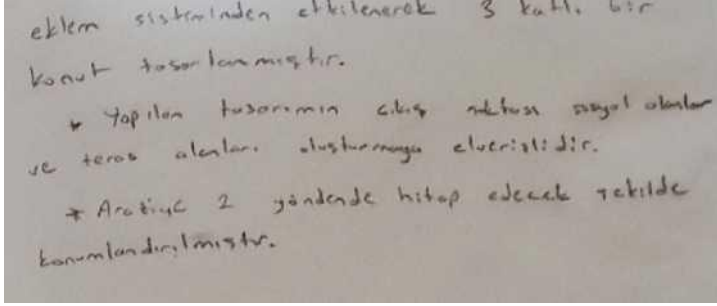 eklem sisteminden etkilenerek 3 katlı bir
konut tasarlanmıştır.
* Yapılan tasarımın çıkış noktası sosyal alanlar
ve teras alanları oluşturmaya elverişlidir.
* Araziye 2 yöndende hitap edecek şekilde
konumlandırılmıştır.